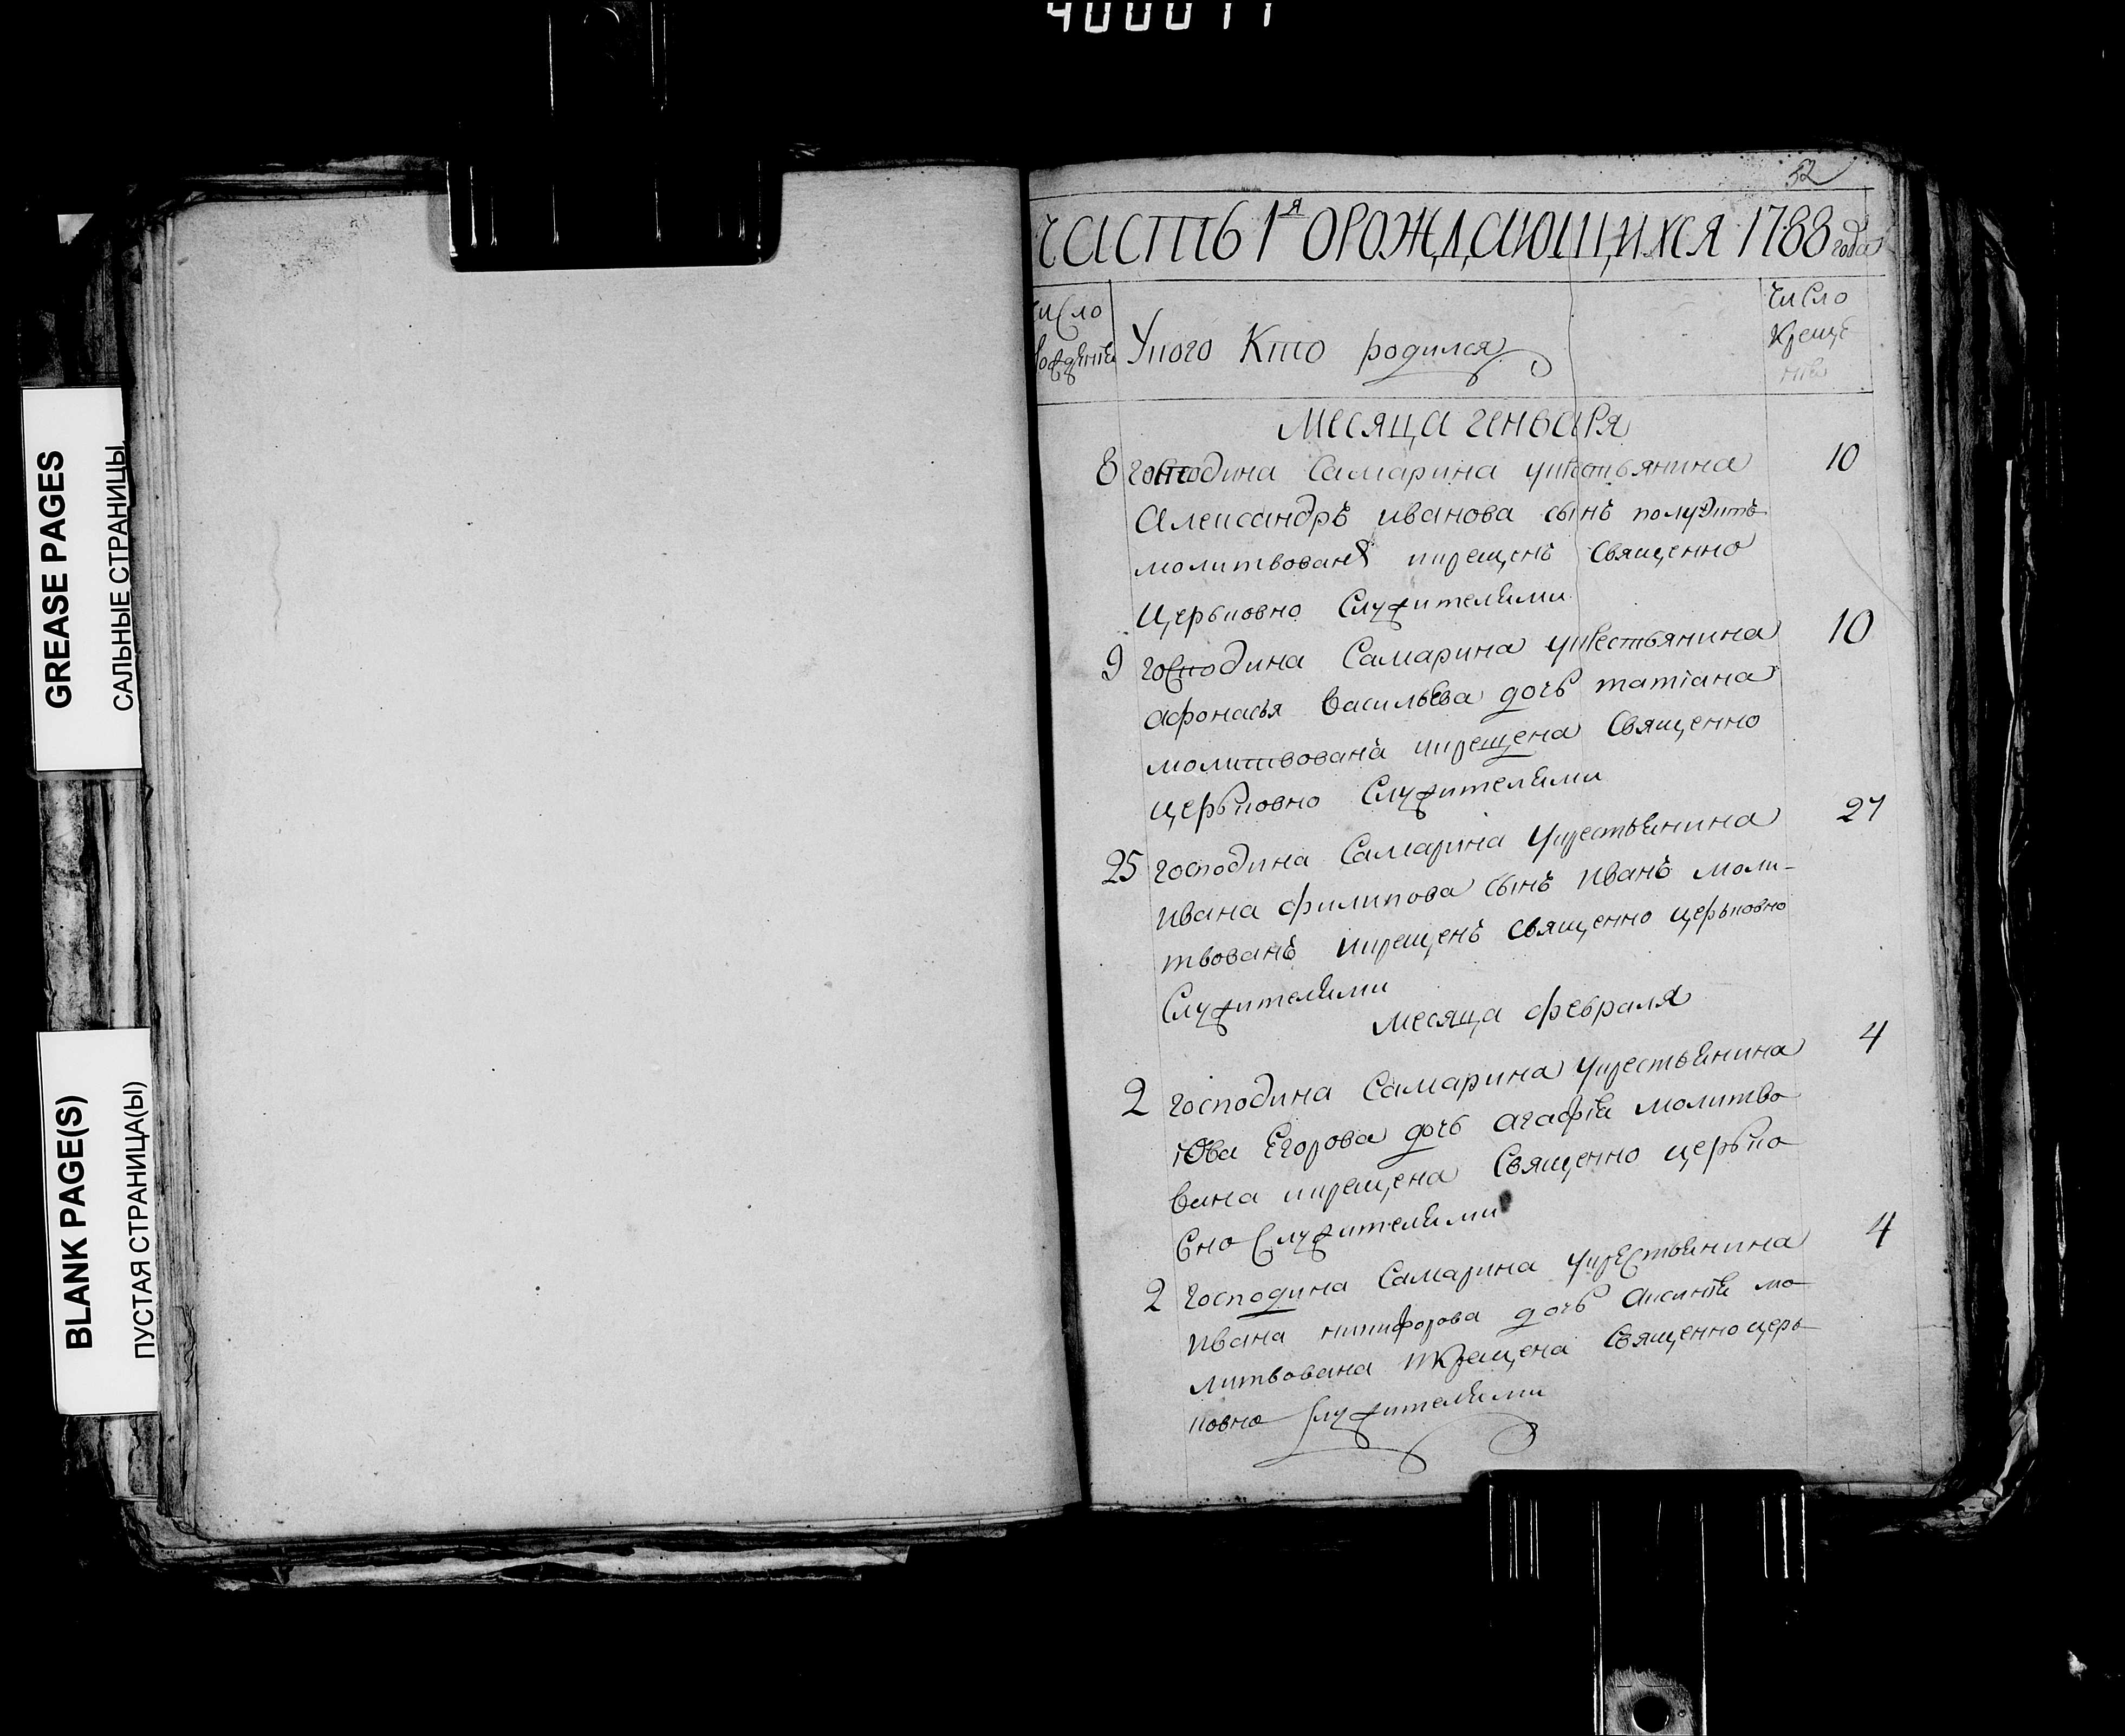 GREASE PAGES
САЛЬНЫЕ СТРАНИЦЫ
BLANK PAGE(S)
ПУСТАЯ СТРАНИЦА(Ы)
52
ЧАСТЬ 1я О РОЖДАЮЩИХСЯ 1788 года
число
Укого Кто родился
число
креще
ния
месяца генваря
8 господина Самарина укрестьянина 10
Александръ иванова сынъ
молитвованъ икрещенъ Священно
Церьковно Служителями
9 господина Самарина укрестьянина 10
афонасья васильева дочь татiана
молитвована икрещена Священно
церьковно Служителями
25 господина Самарина укрестьянина 27
ивана филипова сынъ иванъ моли-
твованъ икрещенъ священно церьковно
Служителями
месяца февраля
2 господина Самарина укрестьянина 4
Егорова дочь агафiя молитво
вана икрещена Священно церько
вно Служителями
2 господина Самарина укрестьянина 4
ивана никифорова дочь аксинiя мо
литвована икрещена Священно церь
ковно Служителями